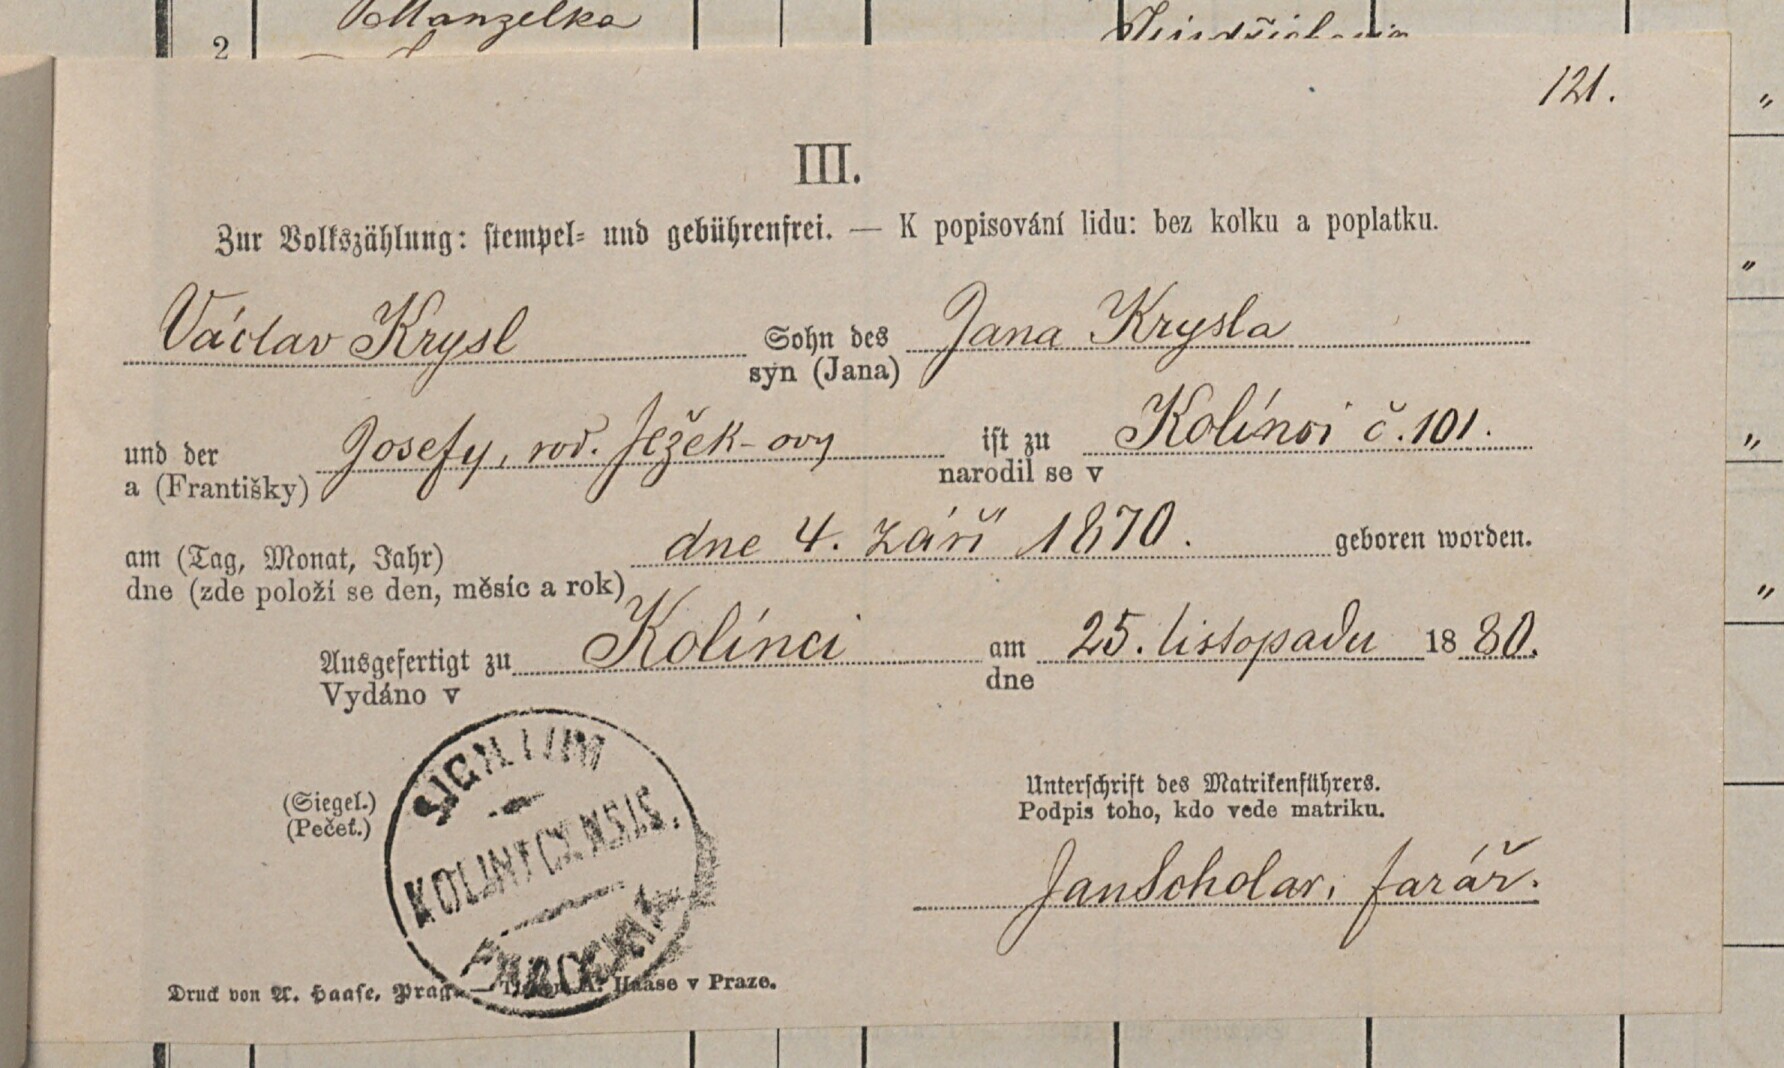 Manželka
2
121.
III.
Zur Volkszählung: stempel= und gebührenfrei. — K popisování lidu: bez kolku a poplatku.
Václav Krysl Sohn des Jana Krysla
syn (Jana)
und der Josefy, roz. Ježek-ovy ist zu Kolínci č. 101.
a (Františky) narodil se v
am (Tag, Monat, Jahr) dne 4. září 1870. geboren worden.
dne (zde položí se den, měsíc a rok)
Ausgefertigt zu Kolínci am 25. listopadu 1880.
Vydáno v dne
(Siegel.)
(Pečeť.)
SIGILLUM
KOLINECENSIS.
PAROCHIAE
Unterschrift des Matrikenführers.
Podpis toho, kdo vede matriku.
Jan Scholar, farář.
Druck von A. Haase, Prag. — Tiskem A. Haase v Praze.